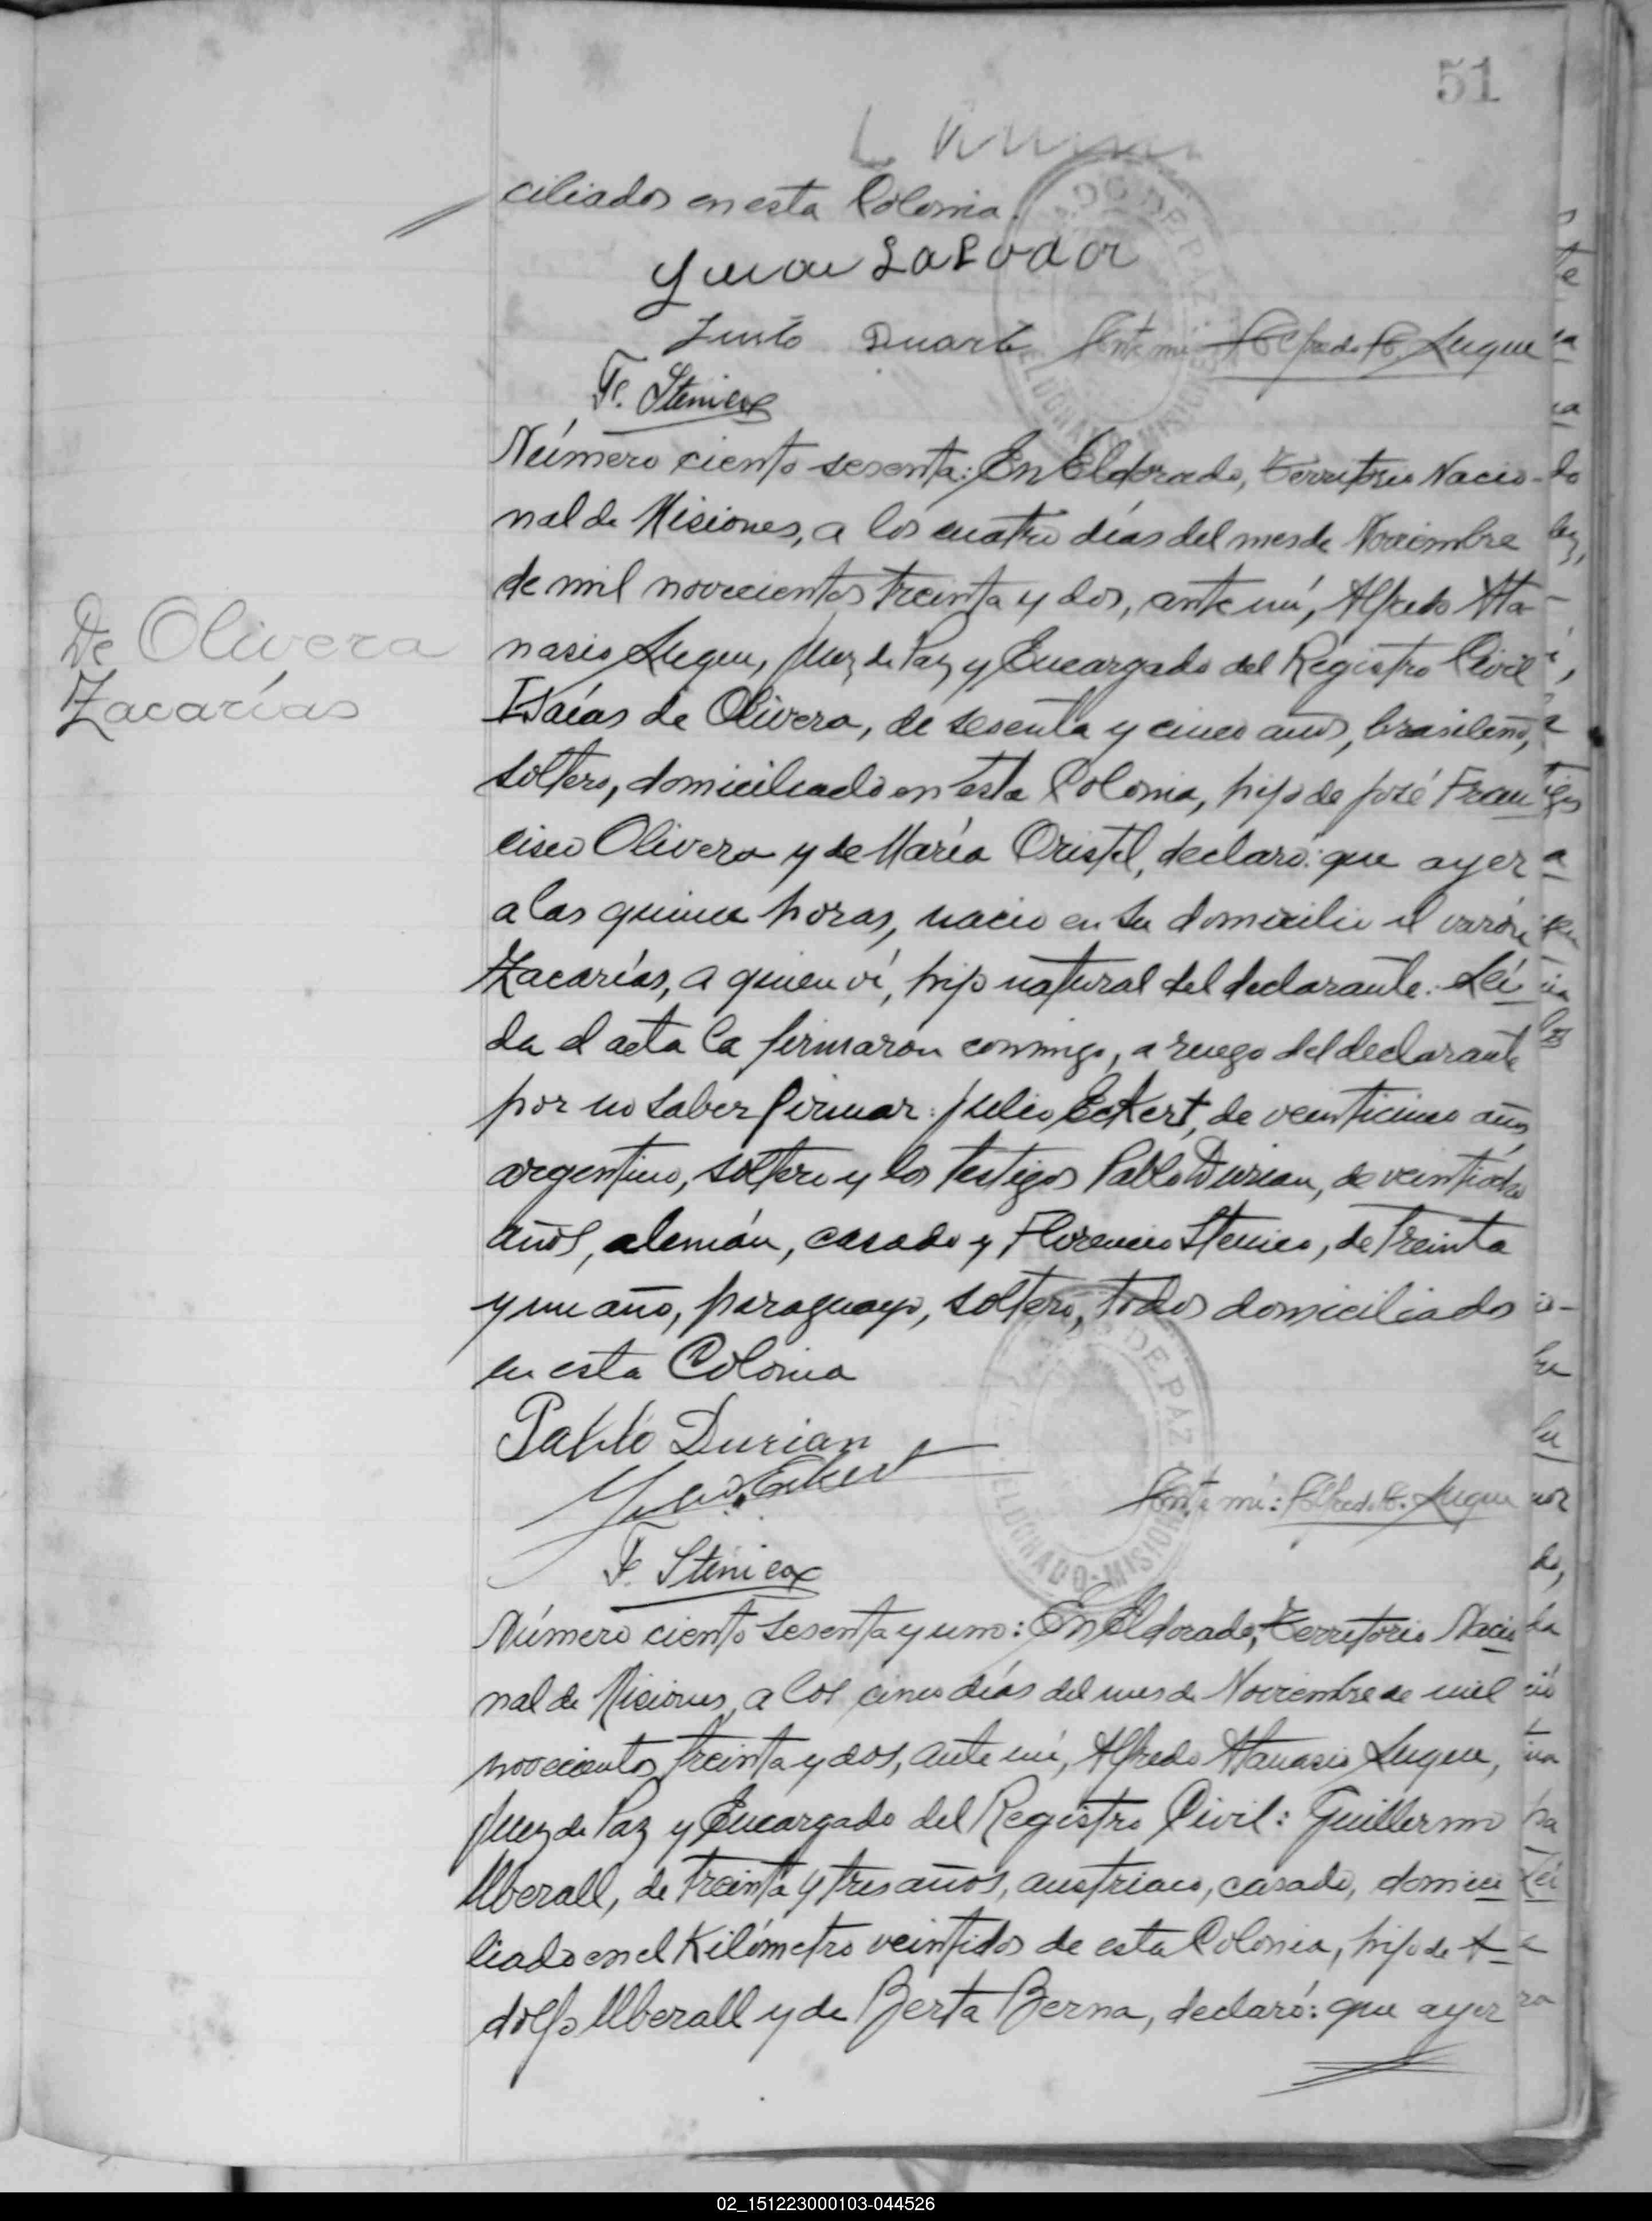 51
ciliados en esta Colonia.
Juan Salvador
Justo Duarte Ante mi: Alfredo A. Luque
F. Stenico
Número ciento sesenta: En Eldorado, Territorio Nacio-
nal de Misiones, a los cuatro días del mes de Noviembre
de mil novecientos treinta y dos, ante mí, Alfredo Ata-
nasio Luque, Juez de Paz y Encargado del Registro Civil
De Olivera
Zacarías
Isaías de Olivera, de sesenta y cinco años, brasileño,
soltero, domiciliado en esta Colonia, hijo de José Fran
cisco Olivera y de María Cristel, declaró: que ayer
a las quince horas, nació en su domicilio el varón
Zacarías, a quien ví, hijo natural del declarante. Leí
da el acta la firmaron conmigo, a ruego del declarante
por no saber firmar: Julio Eckert, de veinticinco años
argentino, soltero y los testigos Pablo Durian, de veintiocho
años, alemán, casado y Florencio Stenico, de treinta
y un año, paraguayo, soltero, todos domiciliados
en esta Colonia
Pablo Durian
Julio Eckert
Ante mí: Alfredo A. Luque
F. Stenico
Número ciento sesenta y uno: En Eldorado, Territorio Nacio
nal de Misiones, a los cinco días del mes de Noviembre de mil
novecientos treinta y dos, ante mí, Alfredo Atanasio Luque,
Juez de Paz y Encargado del Registro Civil: Guillermo
Uberall, de treinta y tres años, austriaco, casado, domici
liado en el Kilómetro veintidos de esta Colonia, hijo de A-
dolfo Uberall y de Berta Berna, declaró: que ayer
02_151223000103-044526